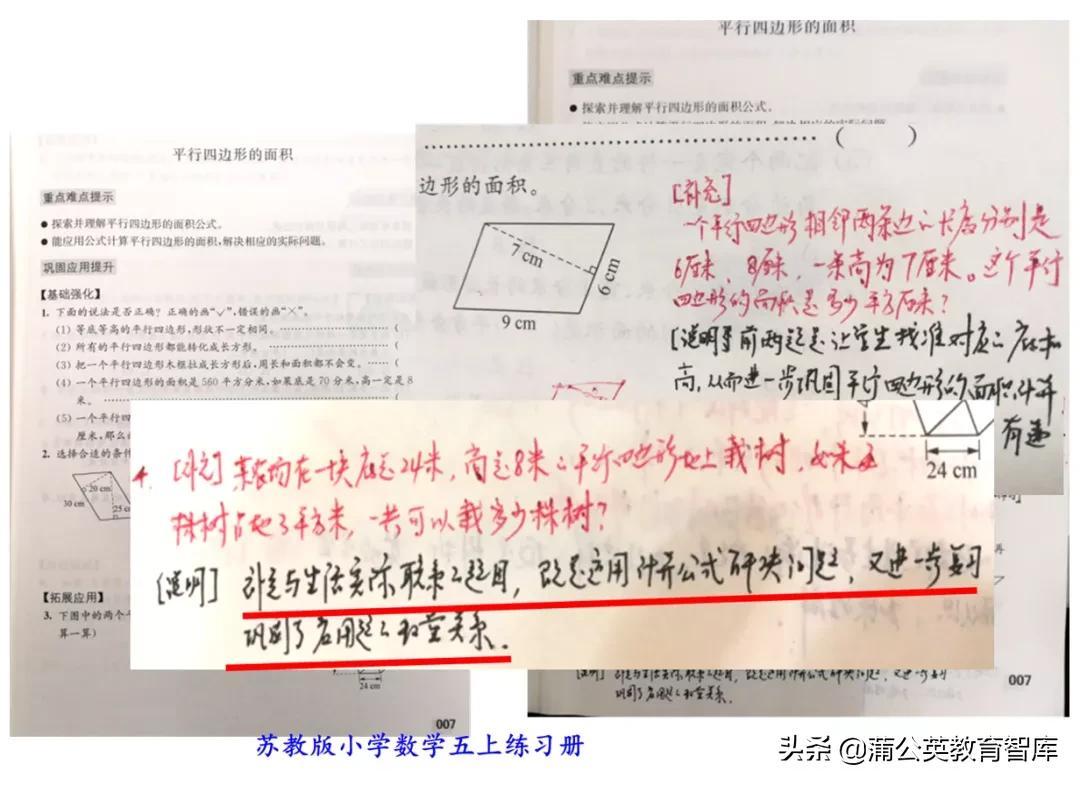 平行四边形的面积
重点难点提示
● 探索并理解平行四边形的面积公式。
● 能应用公式计算平行四边形的面积,解决相应的实际问题。
巩固应用提升
【基础强化】
1. 下面的说法是否正确?正确的画“✓”,错误的画“×”。
(1) 等底等高的平行四边形,形状不一定相同。 (
(2) 所有的平行四边形都能转化成长方形。 (
(3) 把一个平行四边形木框拉成长方形后,周长和面积都不会变。 (
(4) 一个平行四边形的面积是560平方分米,如果底是70分米,高一定是8
米。
(5) 一个平行四
厘米,那么
2. 选择合适的条件
20 cm
30 cm
25 c
【拓展应用】
3. 下图中的两个平
算一算)
24 cm
007
平行四边形的面积
重点难点提示
● 探索并理解平行四边形的面积公式。
( )
边形的面积。
7 cm
6 cm
9 cm
[补充]
一个平行四边形相邻两条边的长度分别是
6厘米,8厘米,一条高为7厘米。这个平行
四边形的面积是多少平方厘米?
前两题是让学生找准对应的底和
高,从而进一步巩固平行四边形的面积计算
24 cm
4. [补充] 在一块底是24米,高是8米的平行四边形地上栽树,如果每
株树占地3平方米,一共可以栽多少株树?
[说明] 这是与生活实际联系的题目,既是运用计算公式解决问题,又进一步复习
巩固了应用题的数量关系。
007
苏教版小学数学五上练习册
头条 @蒲公英教育智库